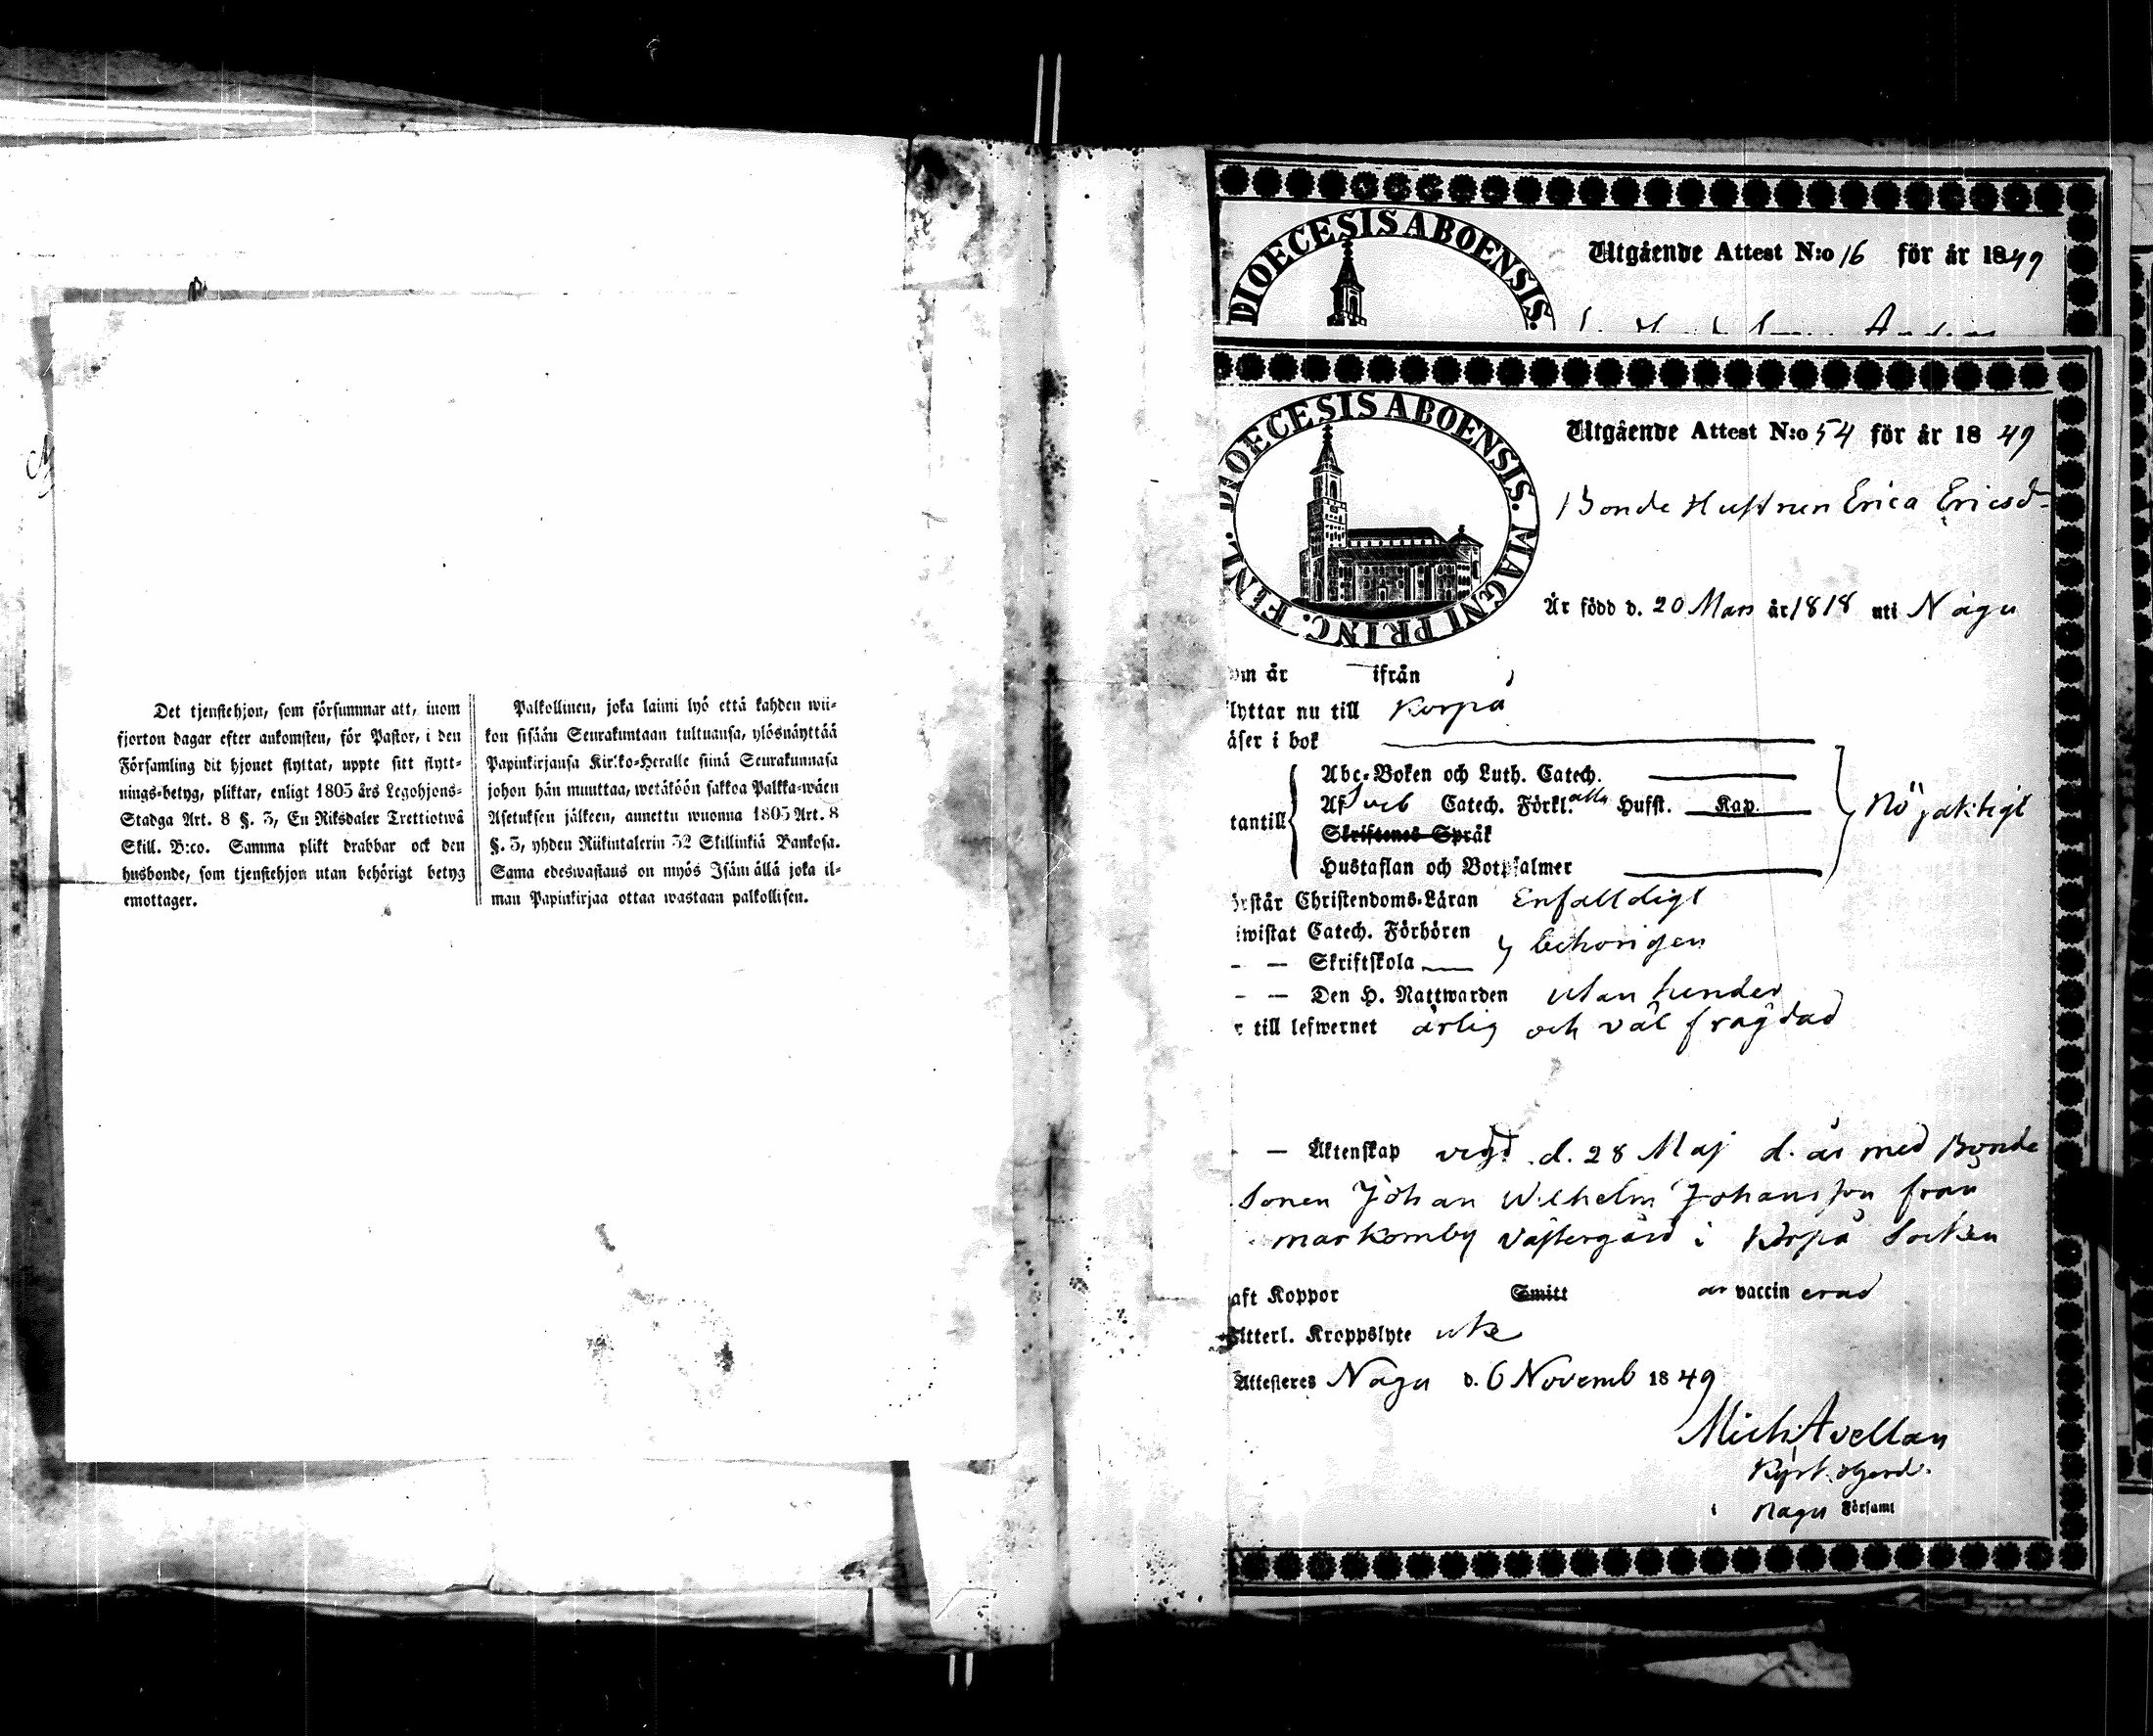 Det tjenstehjon, som försummar att, inom
fjorton dagar efter ankomsten, för Pastor, i den
Församling dit hjonet flyttat, uppte sitt flytt-
nings-betyg, pliktar, enligt 1805 års Legohjons-
Stadga Art. 8 §. 3, En Riksdaler Trettiotwå
Skill. B:co. Samma plikt drabbar ock den
husbonde, som tjenstehjon utan behörigt betyg
emottager.
Palkollinen, joka laimi lyö että kahden wii-
kon sisään Seurakuntaan tultuansa, ylösnäyttää
Papinkirjansa Kirkko-Herralle siinä Seurakunnasa
johon hän muuttaa, wetäköön sakkoa Palkka-wäen
Asetuksen jälkeen, annettu wuonna 1805 Art. 8
§. 3, yhden Riikintalerin 32 Skillinkiä Bankosa.
Sama edeswastaus on myös Isännällä joka il-
man Papinkirjaa ottaa wastaan palkollisen.
DIOECESIS ABOENSIS.
Utgående Attest N:o 16 för år 1849
DIOECESIS ABOENSIS. MAGNI PRINC. FINL.
Utgående Attest N:o 54 för år 1849
Bonde Hustrun Erica Ericsd
Är född d. 20 Mars år 1818 uti Nagu
om år ifrån
lyttar nu till Korpo
äser i bok
Abc-Boken och Luth. Catech.
tantill Af Sveb Catech. Förkl. alla Hufst. Kap. Nöjaktigt
Skriftenes Språk
Hustaflan och Botpsalmer
örstår Christendoms-Läran Enfalldigt
iwistat Catech. Förhören
behörigen
- - Skriftskola
- - Den H. Nattwarden utan hinder
r till lefwernet ärlig och väl frägdad
- - Äktenskap vigd d. 28 Maj d. år med Bonde
Sonen Johan Wilhelm Johansson från
Markomby Västergård i Korpo Socken
aft Koppor Smitt är vaccinerad
ytterl. Kroppslyte icke
Attesteres Nagu d. 6 Novemb 1849
Mich Avellan
Kyrkoherd.
i Nagu Församl